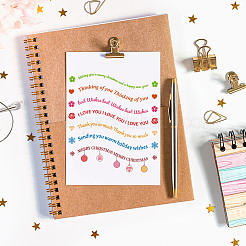 Wishing you a merry christmas and a happy new year
Thinking of you Thinking of you
Best Wishes Best Wishes Best Wishes
I LOVE YOU I LOVE YOU I LOVE YOU
Thank you so much Thank you so much
Sending you warm holiday wishes
MERRY CHRISTMAS MERRY CHRISTMAS